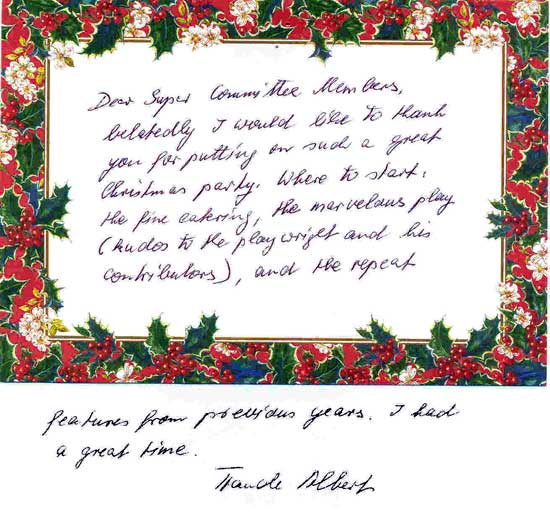 Dear Super Committee Members,
belatedly I would like to thank
you for putting on such a great
Christmas party. Where to start,
the fine catering, the marvelous play
(kudos to the playwright and his
contributors), and the repeat
features from previous years. I had
a great time.
Traude Albert